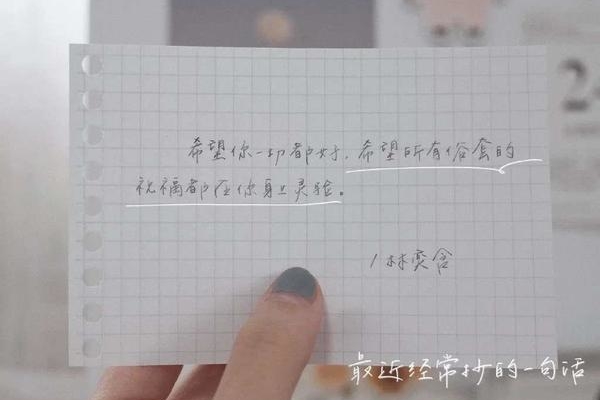 希望你一切都好，希望所有俗套的
祝福都在你身上灵验。
/林奕含
2
最近经常抄的一句话